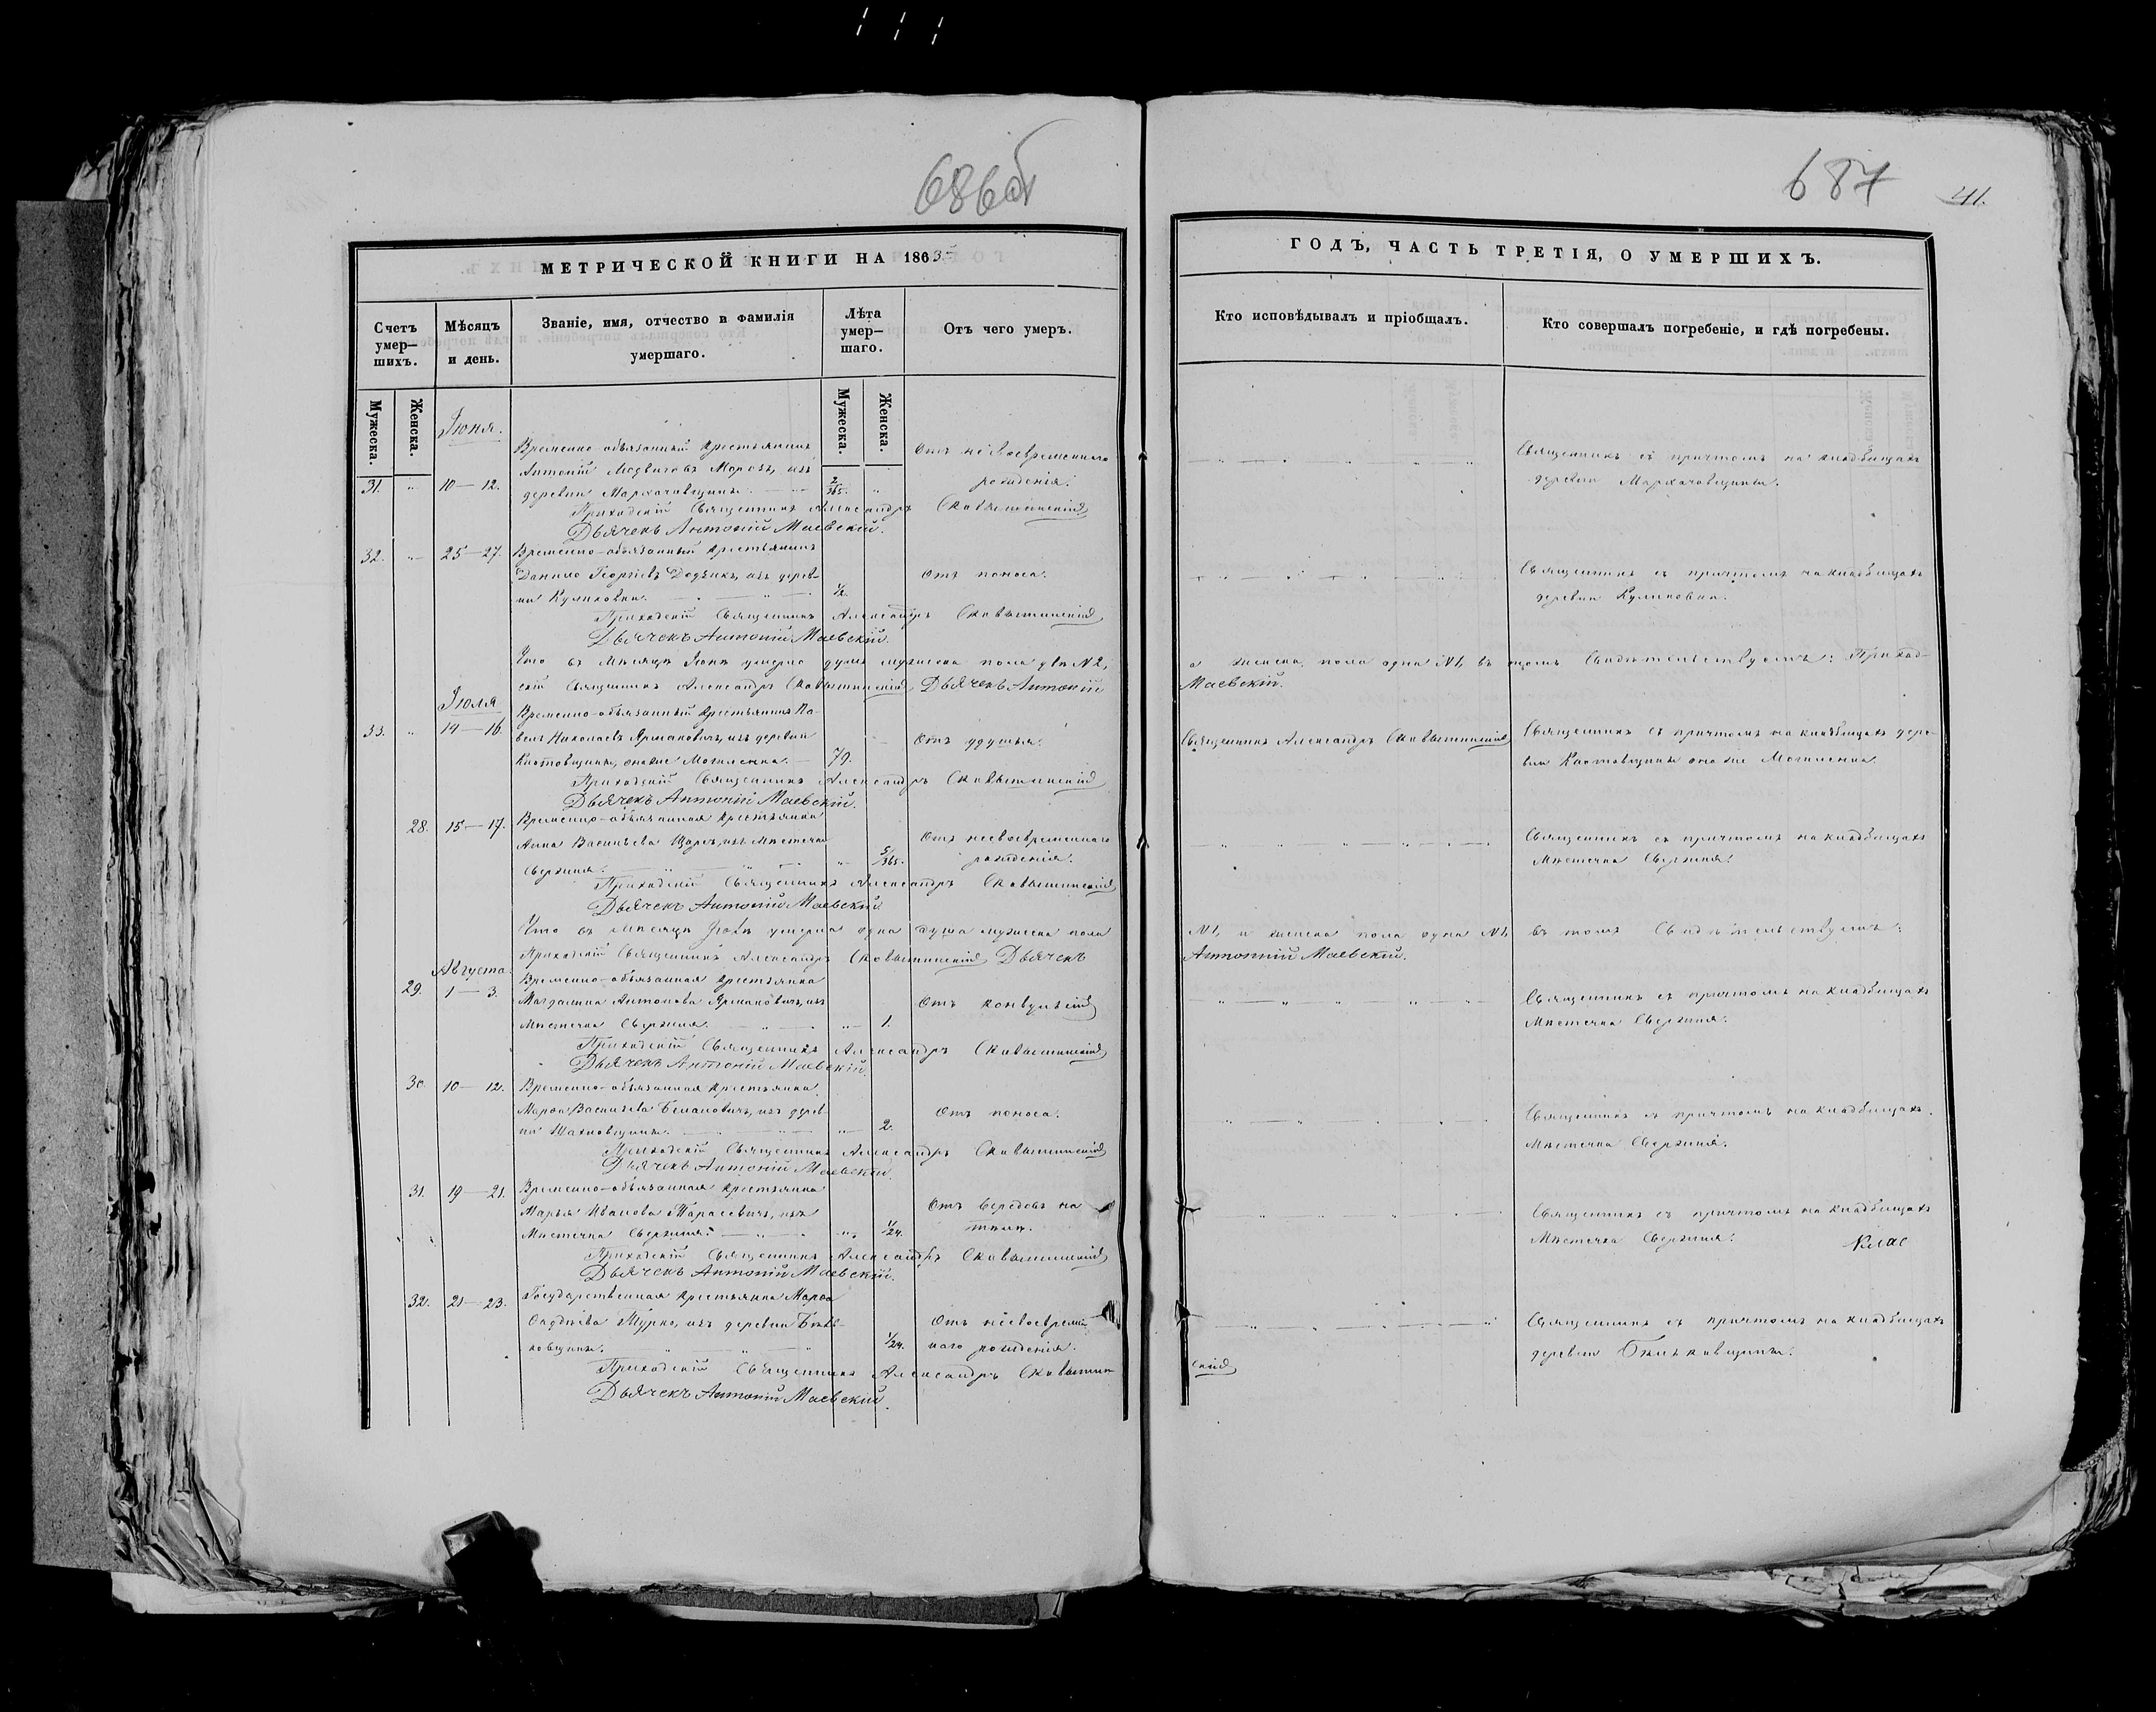 686об
МЕТРИЧЕСКОЙ КНИГИ НА 1863й
Счетъ умер-шихъ.
Мѣсяцъ и день.
Званіе, имя, отчество и фамилія умершаго.
Лѣта умер-шаго.
Отъ чего умеръ.
Мужеска.
Женска.
Мужеска.
Женска.
Іюня.
Временно-обязанный крестьянинъ
Антоній Морозъ, изъ
31. „ 10—12. деревни 2/365. „
Отъ несвоевременнаго
рожденія.
Приходскій Священникъ Александръ
Дьячекъ Антоній Маевскій.
32. „ 25—27. Временно-обязанный крестьянинъ
Данило Георгіевъ изъ дерев-
ни Куликовки. 1/2. Отъ поноса.
Приходскій Священникъ Александръ
Дьячекъ Антоній Маевскій.
Что въ мѣсяцѣ Іюнѣ умерло душъ мужеска пола двѣ №2,
скій Священникъ Александръ Дьячекъ Антоній
Іюля
33. „ 14—16. Временно-обязанный крестьянинъ Па-
велъ Николаевъ Ярмаковичъ, изъ деревни
79. Отъ удушья.
Приходскій Священникъ Александръ
Дьячекъ Антоній Маевскій.
28. 15—17. Временно-обязанная крестьянка
Анна Васильева изъ мѣстечка
Свержня. „ 5/365. Отъ несвоевременнаго
рожденія.
Приходскій Священникъ Александръ
Дьячекъ Антоній Маевскій
Что въ мѣсяцѣ Іюлѣ умерла одна душа мужеска пола
Приходскій Священникъ Александръ Дьячекъ
Августа.
29. 1—3. Временно-обязанная крестьянка
Магдалина Антонова Ярмаковичъ, изъ
мѣстечка Свержня. „ 1. Отъ конвульсій
Приходскій Священникъ Александръ
Дьячекъ Антоній Маевскій.
30. 10—12. Временно-обязанная крестьянка
Марѳа Васильева изъ дерев-
ни „ 2. Отъ поноса.
Приходскій Священникъ Александръ
Дьячекъ Антоній Маевскій.
31. 19—21. Временно-обязанная крестьянка
Марья Иванова Тарасевичъ, изъ
Мѣстечка Свержня. „ 1/24. Отъ вередовъ на
тѣлѣ.
Приходскій Священникъ Александръ
Дьячекъ Антоній Маевскій.
32. 21—23. Государственная крестьянка Марѳа
Ѳадѣева Турко, изъ деревни
1/24. Отъ несвоевремен-
наго рожденія.
Приходскій Священникъ Александръ
Дьячекъ Антоній Маевскій.
687
41.
ГОДЪ, ЧАСТЬ ТРЕТІЯ, О УМЕРШИХЪ.
Кто исповѣдывалъ и пріобщалъ.
Кто совершалъ погребеніе, и гдѣ погребены.
Священникъ съ причтомъ на кладбищахъ
деревни
Священникъ съ причтомъ на кладбищахъ
деревни Куликовки.
а женска пола одна №1, въ томъ свидѣтельствуемъ: Приход-
Маевскій.
Священникъ Александръ
Священникъ съ причтомъ на кладбищахъ дере-
вни
Священникъ съ причтомъ на кладбищахъ
Мѣстечка Свержня.
№1, и женска пола одна №1, въ томъ свидѣтельствуемъ:
Антоній Маевскій.
Священникъ съ причтомъ на кладбищахъ
Мѣстечка Свержня.
Священникъ съ причтомъ на кладбищахъ
Мѣстечка Свержня.
Священникъ съ причтомъ на кладбищахъ
Мѣстечка Свержня.
Священникъ съ причтомъ на кладбищахъ
деревни
скій